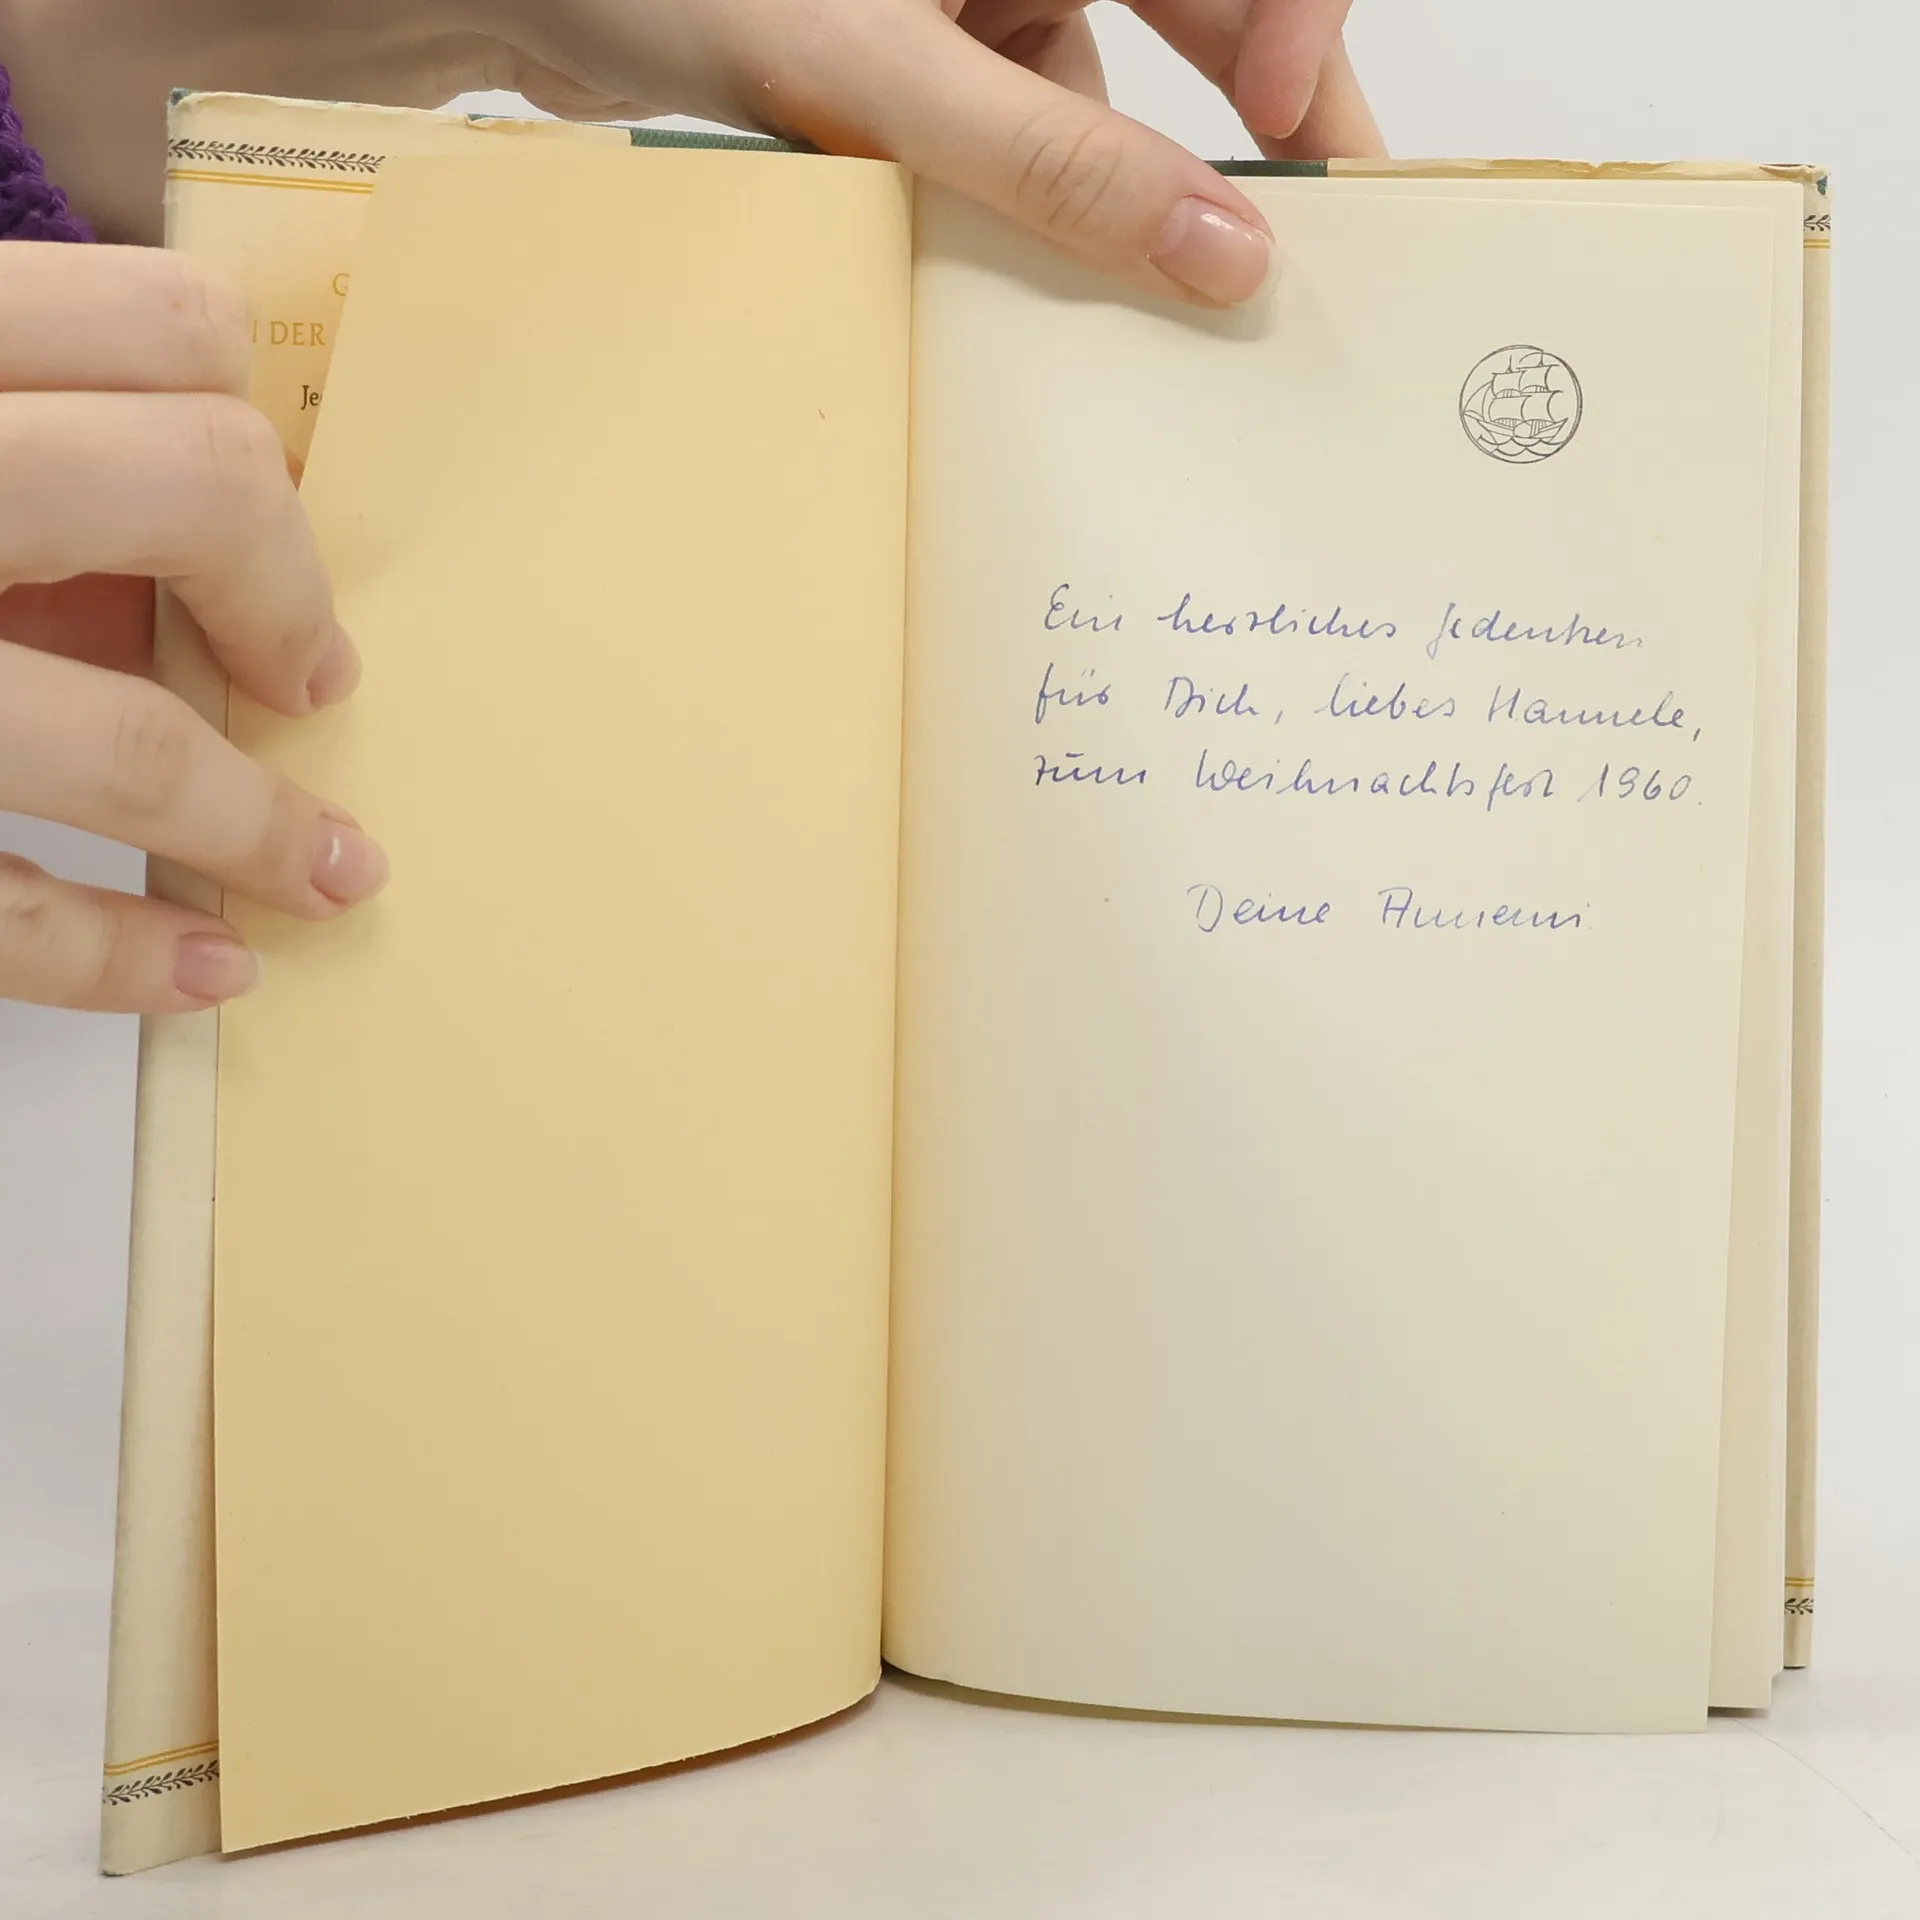 G
N DER
Je
Ein herzliches Gedenken
für Dich, liebes Hannele,
zum Weihnachtsfest 1960.
Deine Annemi